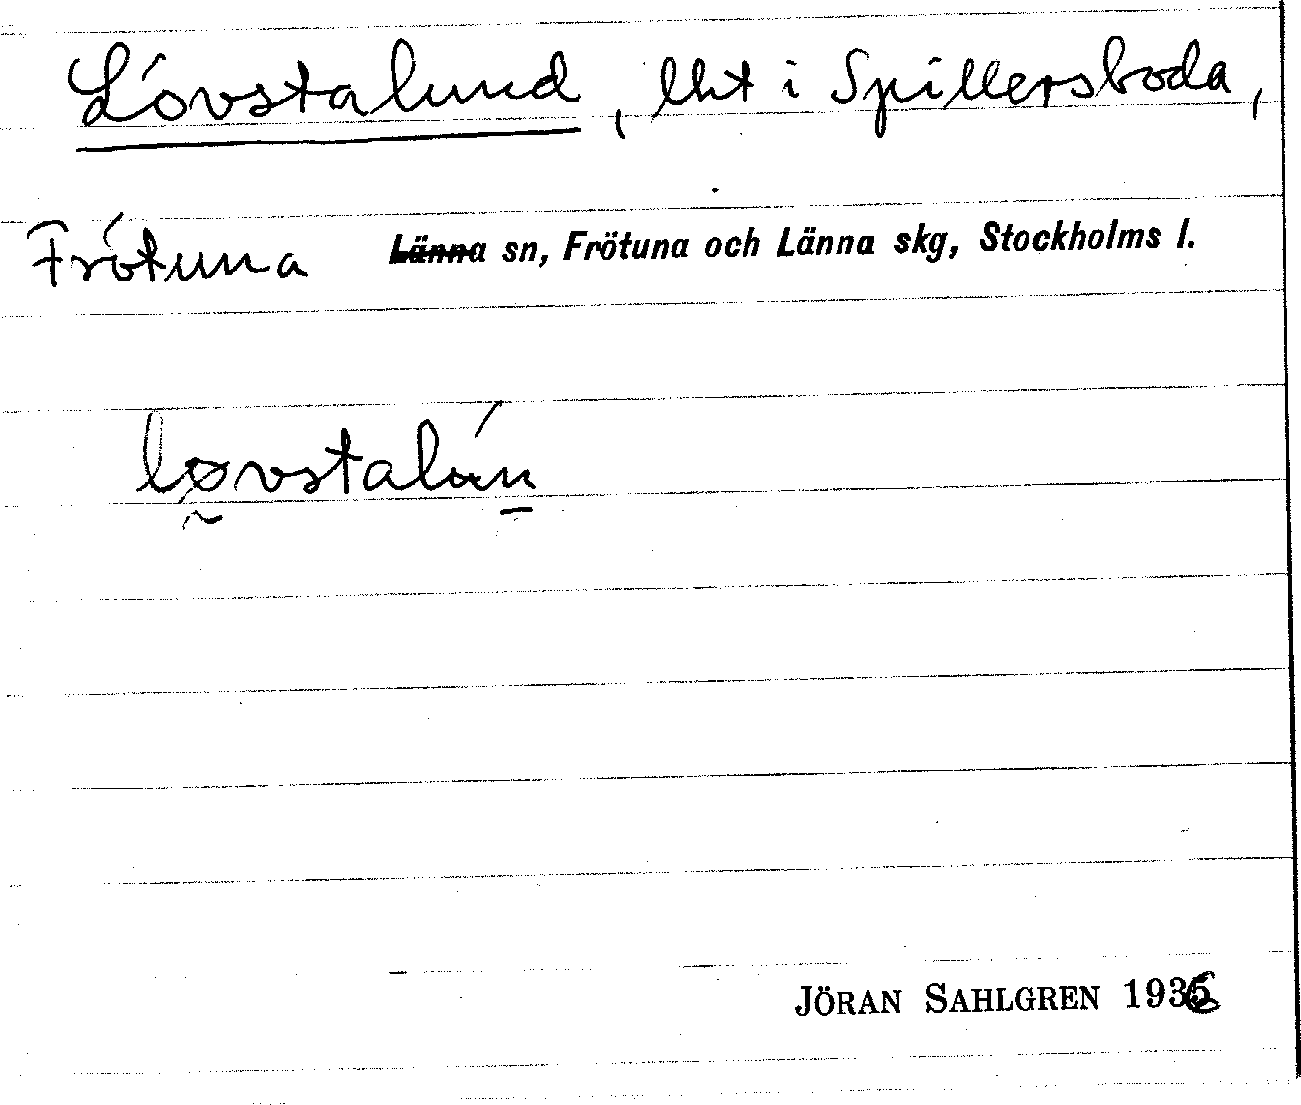 Lövstalund, lht i Spillersboda,
Frötuna Länna sn, Frötuna och Länna skg, Stockholms l.
løvstalún
JÖRAN SAHLGREN 1936